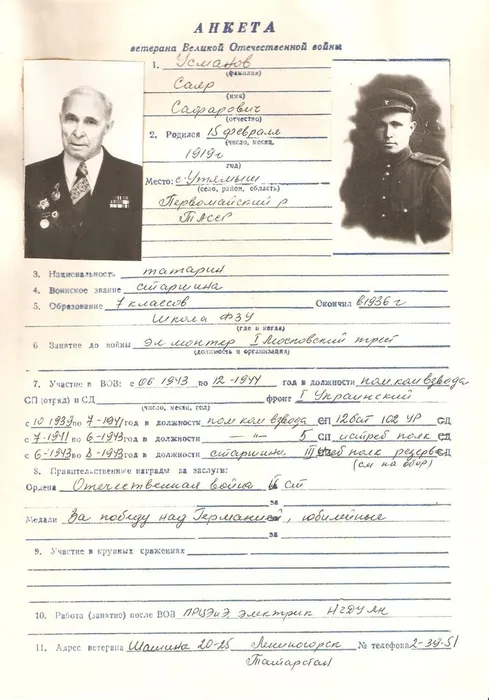 АНКЕТА
ветерана Великой Отечественной войны
1. Усманов
(фамилия)
Саяр
(имя)
Сафарович
(отчество)
2. Родился 15 февраля
(число, месяц,
1919 г
год)
Место: с. Утямыш
(село, район, область)
Первомайский р
ТАССР
3. Национальность татарин
4. Воинское звание старшина
5. Образование 7 классов Окончил в 1936 г
Школа ФЗУ
(где и когда)
6 Занятие до войны эл монтер I Московский трест
(должность и организация)
7. Участие в ВОВ: с 06 1943 по 12-1944 год в должности пом ком взвода
СП (отряд) и СД фронт I Украинский
(число, месяц, год)
с 10 1939 по 7-1941 год в должности пом ком взвода СП 12 бат 102 УР СД
с 7-1941 по 6-1943 год в должности —"— 5 СП истреб полк СД
с 6-1943 по 8-1943 год в должности старшина полк резерва СД
(см на обор)
8. Правительственные награды за заслуги:
Ордена Отечественная война II ст
за
Медали За победу над Германией, юбилейные
за
9. Участие в крупных сражениях
10. Работа (занятие) после ВОВ ПРЦЭиЭ электрик НГДУ Лн
11. Адрес ветерана Шашина 20-25 Лениногорск № телефона 2-39-51
Татарстан